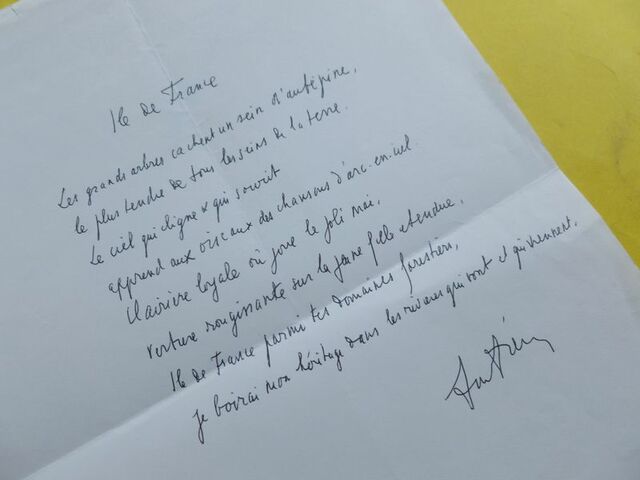 Ile de France
Les grands arbres cachent un sein d'aubépine,
le plus tendre de tous les seins de la terre.
Le ciel qui cligne & qui sourit
apprend aux oiseaux des chansons d'arc-en-ciel.
Clairière loyale où joue le joli mai,
verture rougissante sur la jeune fille étendue,
Ile de France parmi tes domaines forestiers,
je boirai mon héritage dans les rivières qui vont et qui viennent.